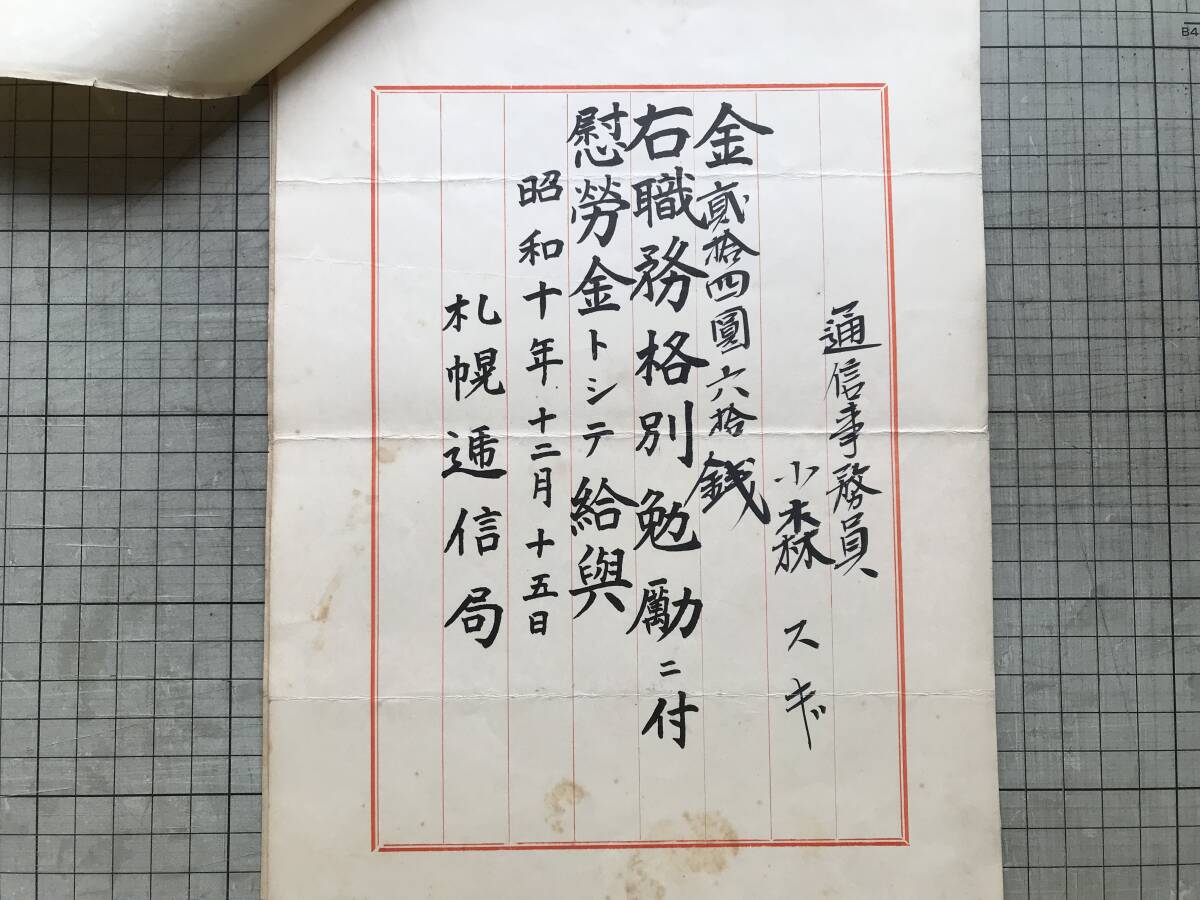 通信事務員
小森スギ
金貳拾四圓六拾錢
右職務格別勉勵ニ付
慰勞金トシテ給與
昭和十年十二月十五日
札幌遞信局
B4